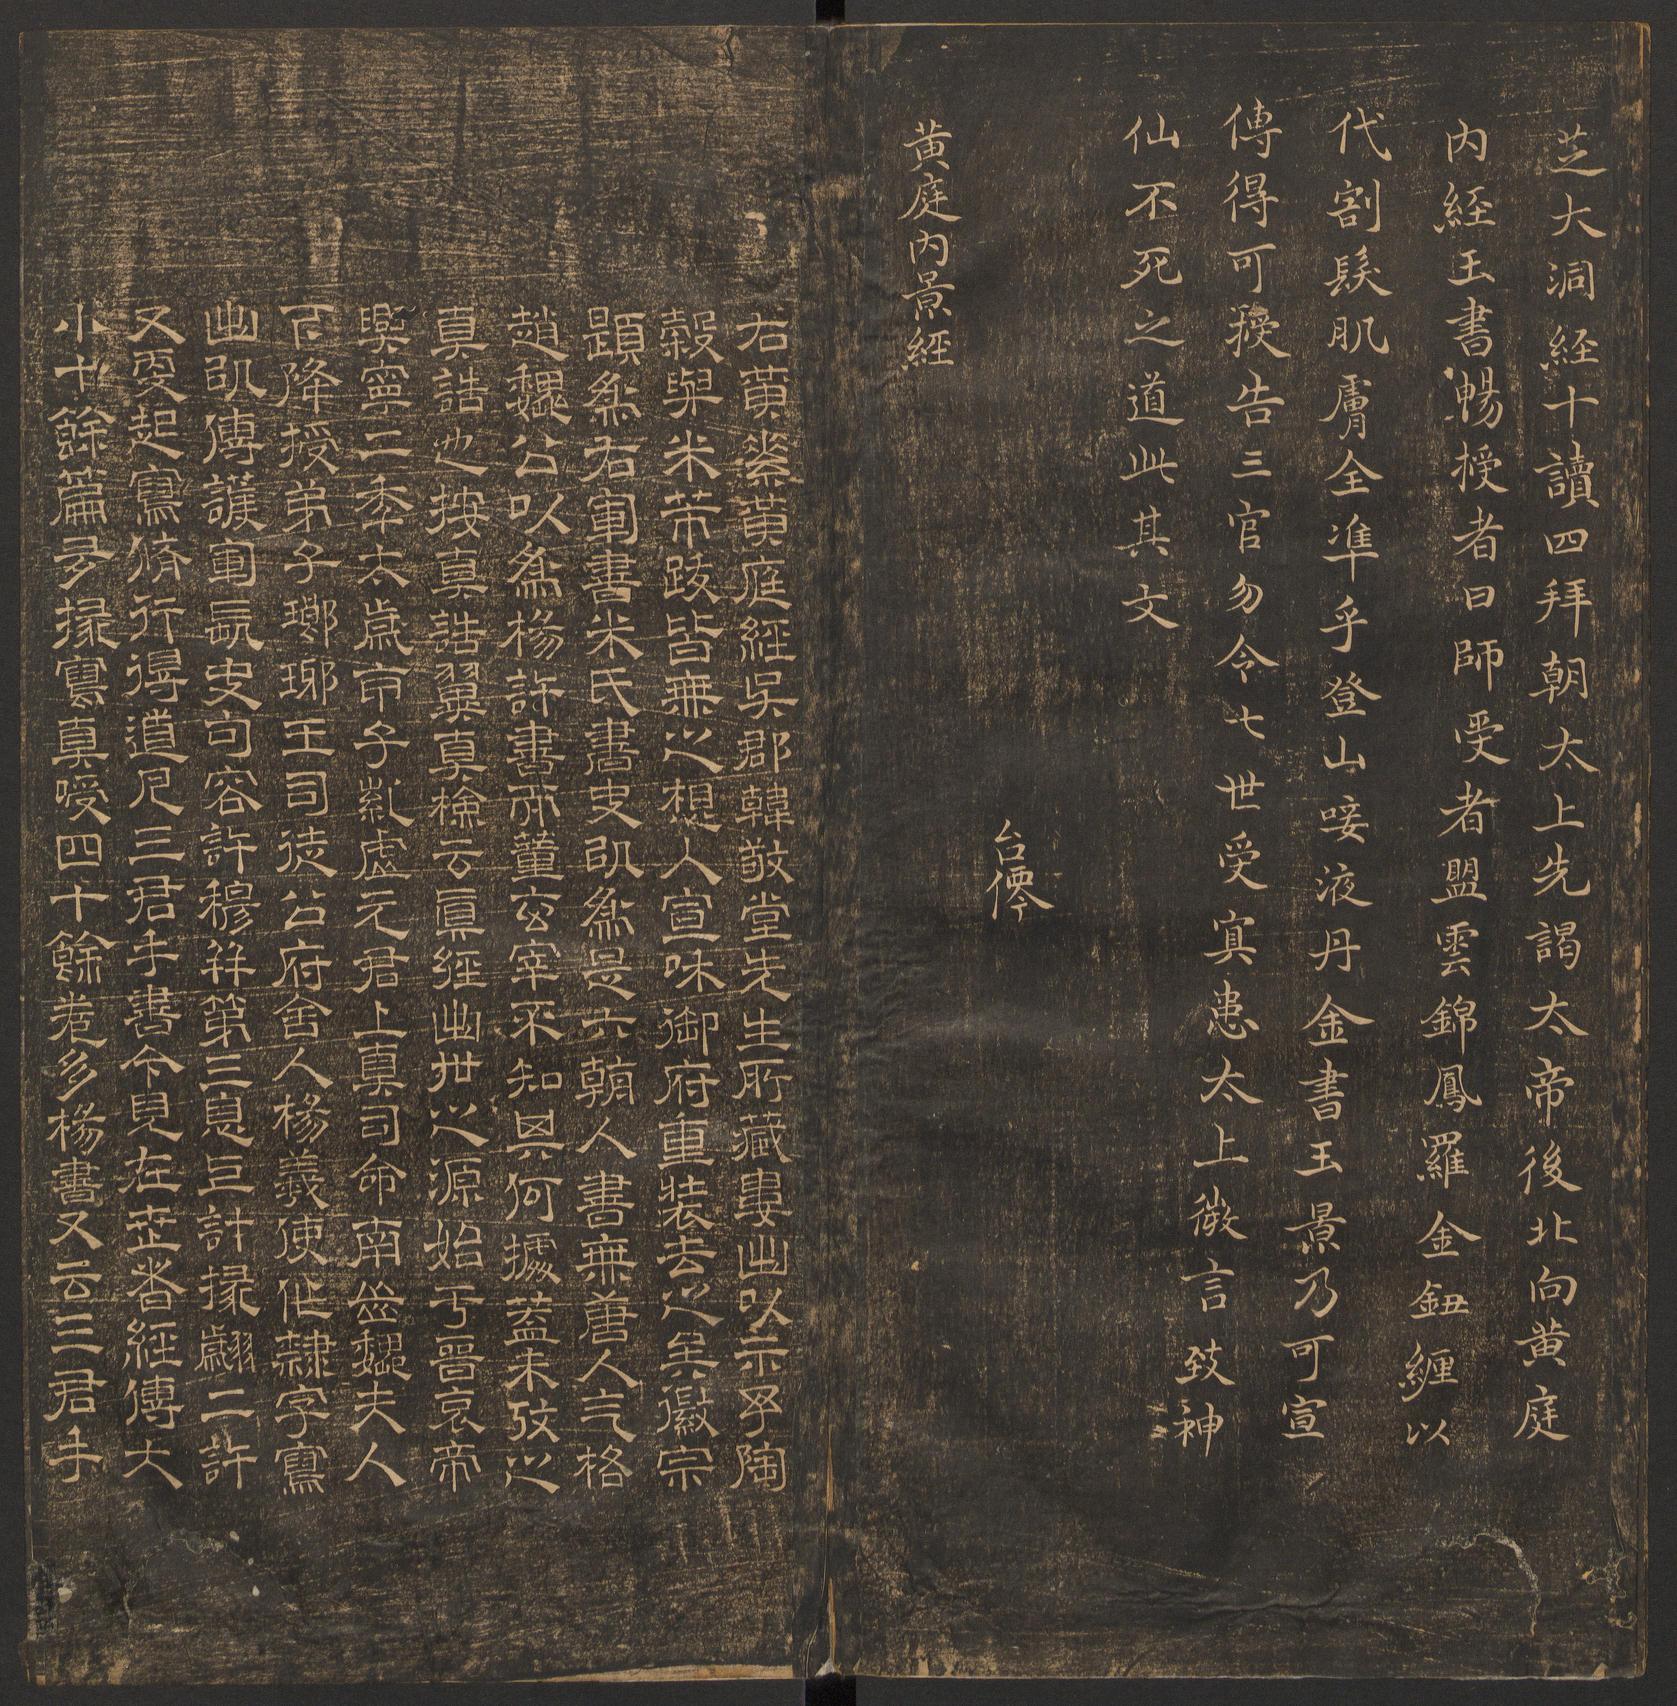 芝大洞經十讀四拜朝太上先謁太帝後北向黃庭
內經玉書暢授者曰師受者盟雲錦鳳羅金鈕纏以
代割髮肌膚全準乎登山唼液丹金書玉景乃可宣
傳得可授告三官勿令七世受寘患太上微言致神
仙不死之道此其文
黃庭內景經
右黃素黃庭經吳郡韓敬堂先生所藏婁出以示予陶
穀與米芾跋皆無之想入宣咊御府重裝去之矣徽宗
題為右軍書米氏書史則為是六朝人書無唐人气格
趙魏公以為楊許書而董玄宰不知其何據蓋未攷之
真誥也按真誥翼真檢云眞經出世之源始于晉哀帝
興寧二秊太歲甲子紫虛元君上眞司命南嶽魏夫人
下降授弟子瑯琊王司徒公府舍人楊羲使作隸字寫
出以傳護軍長史句容許穆幷第三息上計掾翽二許
又更起寫脩行得道凡三君手書今見在世者經傳大
小十餘篇多掾寫真㖟四十餘卷多楊書又云三君手